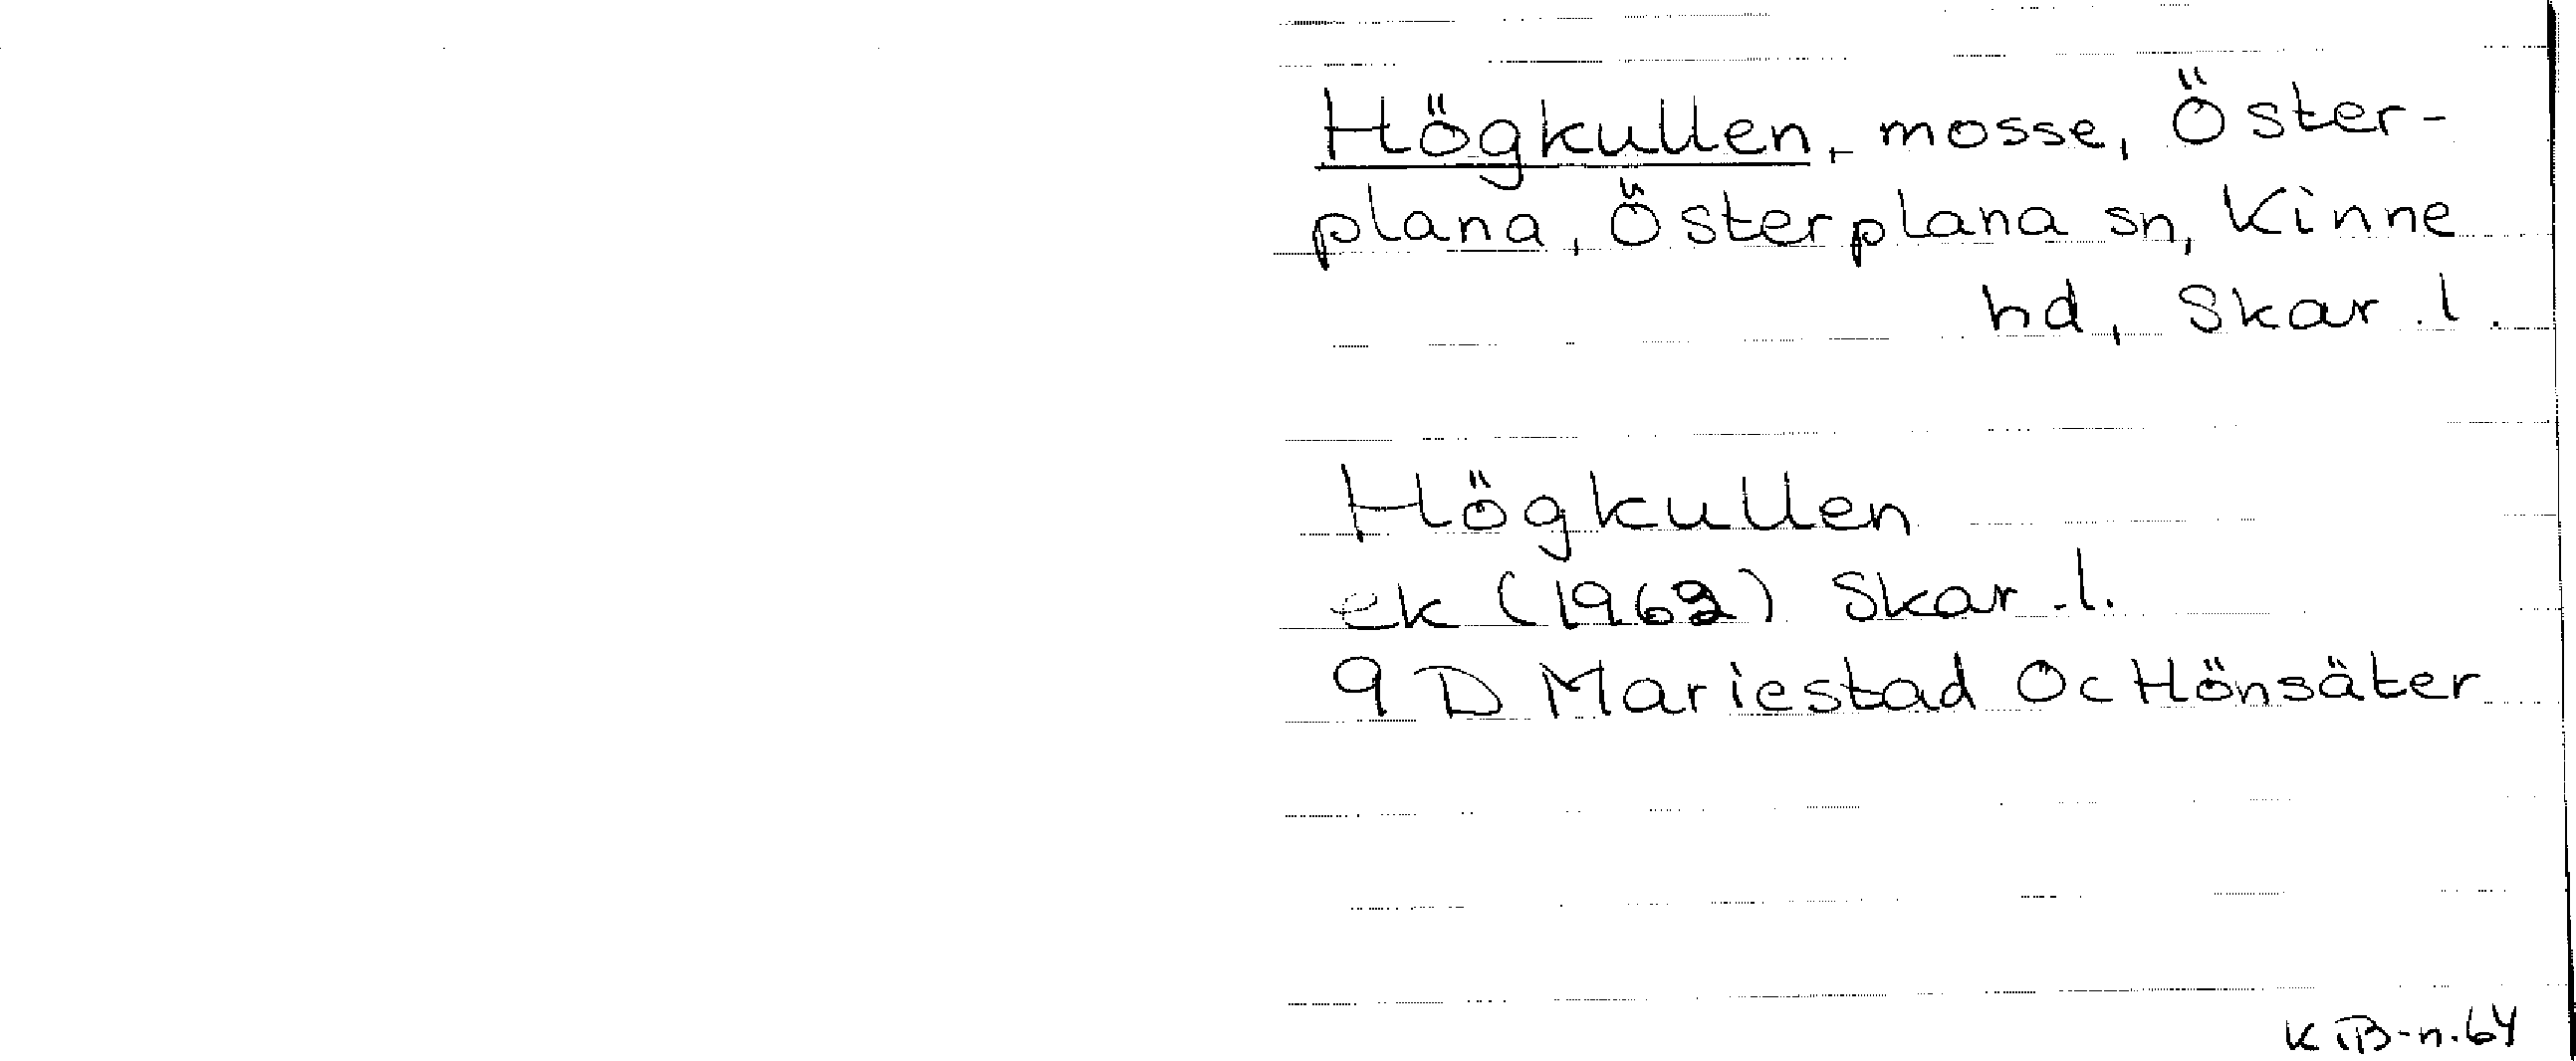 Högkullen, mosse, Öster-
plana, Österplana sn, Kinne
hd, Skar.l.
Högkullen
ek (1962) Skar.l.
9 D Mariestad Oc Hönsäter
K iB-n.64